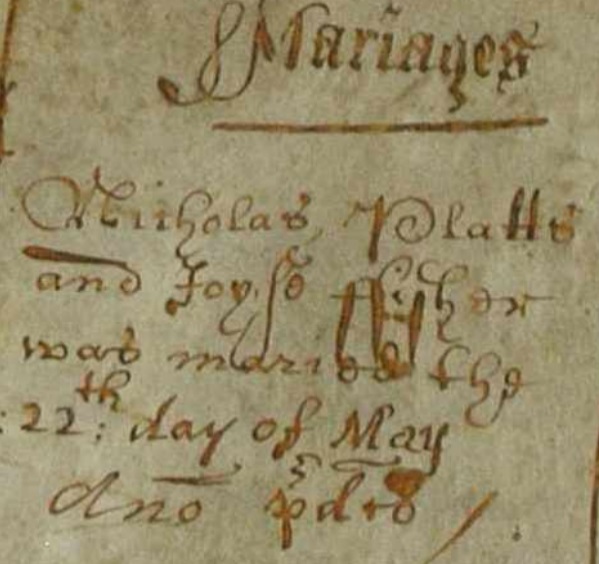 Mariages
Nicholas Platts
and Joyse ffisher
was maried the
:22:th day of May
Ano pdco